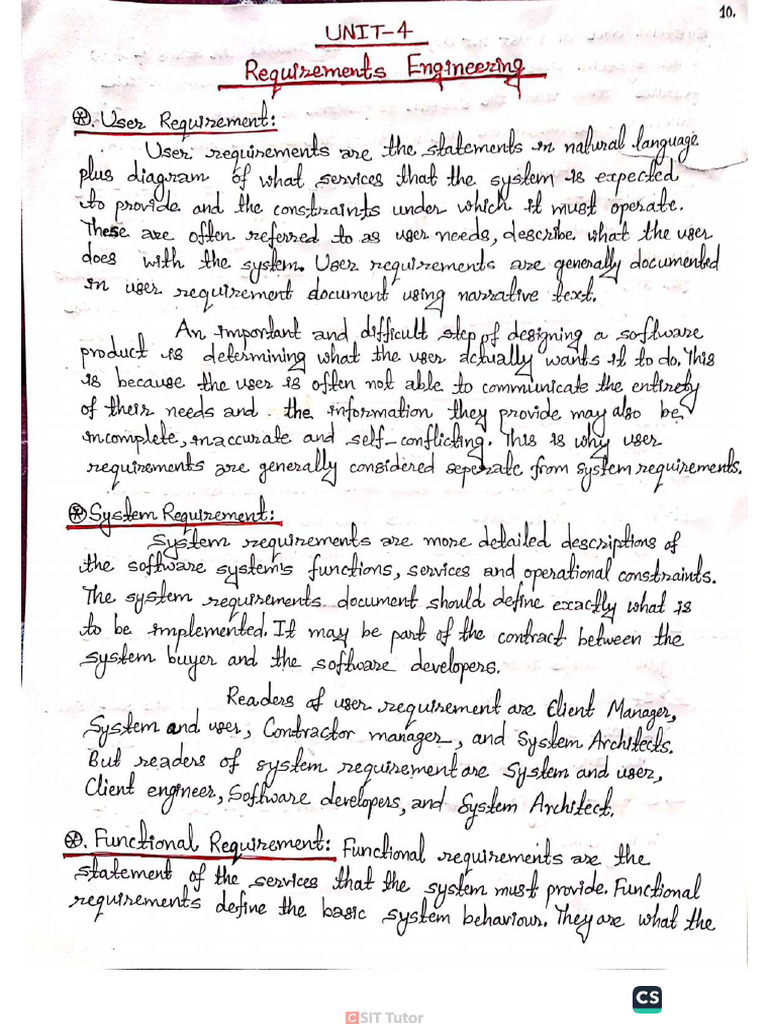 10.
UNIT-4
Requirements Engineering
⊛. User Requirement:
User requirements are the statements in natural language
plus diagram of what services that the system is expected
to provide and the constraints under which it must operate.
These are often referred to as user needs, describe what the user
does with the system. User requirements are generally documented
in user requirement document using narrative text.
An important and difficult step of designing a software
product is determining what the user actually wants it to do. This
is because the user is often not able to communicate the entirety
of their needs and the information they provide may also be
incomplete, inaccurate and self-conflicting. This is why user
requirements are generally considered seperate from system requirements.
⊛ System Requirement:
System requirements are more detailed descriptions of
the software system's functions, services and operational constraints.
The system requirements document should define exactly what is
to be implemented. It may be part of the contract between the
system buyer and the software developers.
Readers of user requirement are Client Manager,
System and user, Contractor manager, and System Architects.
But readers of system requirement are System and user,
Client engineer, Software developers, and System Architect.
⊛. Functional Requirement: Functional requirements are the
statement of the services that the system must provide. Functional
requirements define the basic system behaviour. They are what the
CS
CSIT Tutor